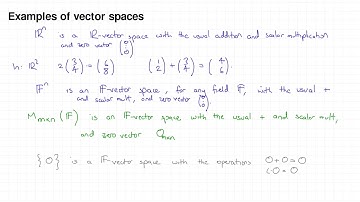 Examples of vector spaces
ℝⁿ is a ℝ-vector space with the usual addition and scalar multiplication
and zero vector (0 ⋮ 0)
In ℝ² 2(3 4) = (6 8) (1 2) + (3 4) = (4 6).
𝔽ⁿ is an 𝔽-vector space, for any field 𝔽, with the usual +
and scalar mult, and zero vector (0 ⋮ 0)
M m×n (𝔽) is an 𝔽-vector space with the usual + and scalar mult,
and zero vector O
{0} is a 𝔽-vector space with the operations 0+0=0
c·0=0